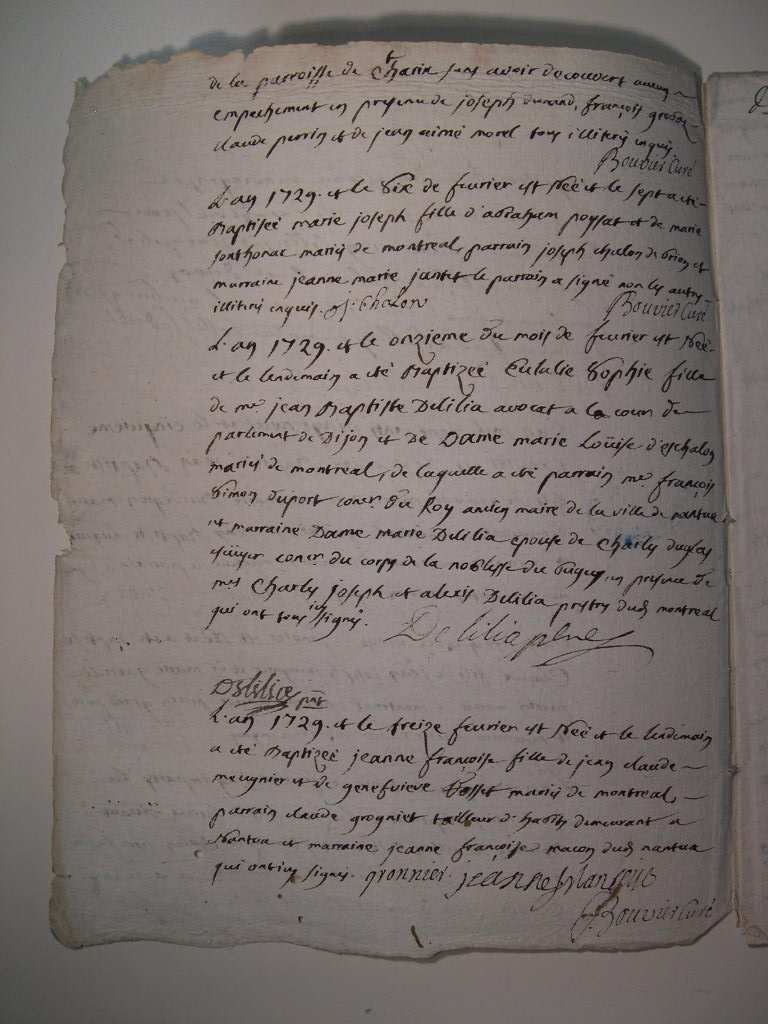 de la parroisse de Charix sans avoir decouvert aucun
empechement en presence de joseph durand, françois
claude perrin et de jean aimé morel tous illiterés enquis
Bouvier Curé
L'an 1729. et le six de fevrier est née et le sept a eté
Baptisée marie joseph fille d'abraham poysat et de marie
mariés de montreal, parrain joseph chalon de brion et
marraine jeanne marie jantet le parrain a signé non les autres
illiterés enquis. j. Chalon
Bouvier Curé
L'an 1729. et le onzieme du mois de fevrier est née
et le lendemain a eté Baptizée Eulalie Sophie fille
de mr. jean Baptiste Delilia avocat a la cour du
parlement de Dijon et de Dame marie Loüise d'eschalon
mariés de montreal, de laquelle a eté parrain mr. françois
Simon duport coner. du Roy ancien maire de la ville de nantua
et marraine Dame marie Delilia epouse de Charles
coner. du corps de la noblesse du bugey, en presence de
mrs Charles joseph et alexis Delilia prestres dud. montreal
qui ont tous icy signés.
Delilia
Delilia
L'an 1729. et le treize fevrier est née et le lendemain
a eté Baptizée jeanne françoise fille de jean claude
meugnier et de genefvieve Bosset mariés de montreal,
parrain claude grognier tailleur d'habits demeurant a
Nantua et marraine jeanne françoise macon dud. nantua
qui ont icy signés. gronnier. jeanne
Bouvier Curé